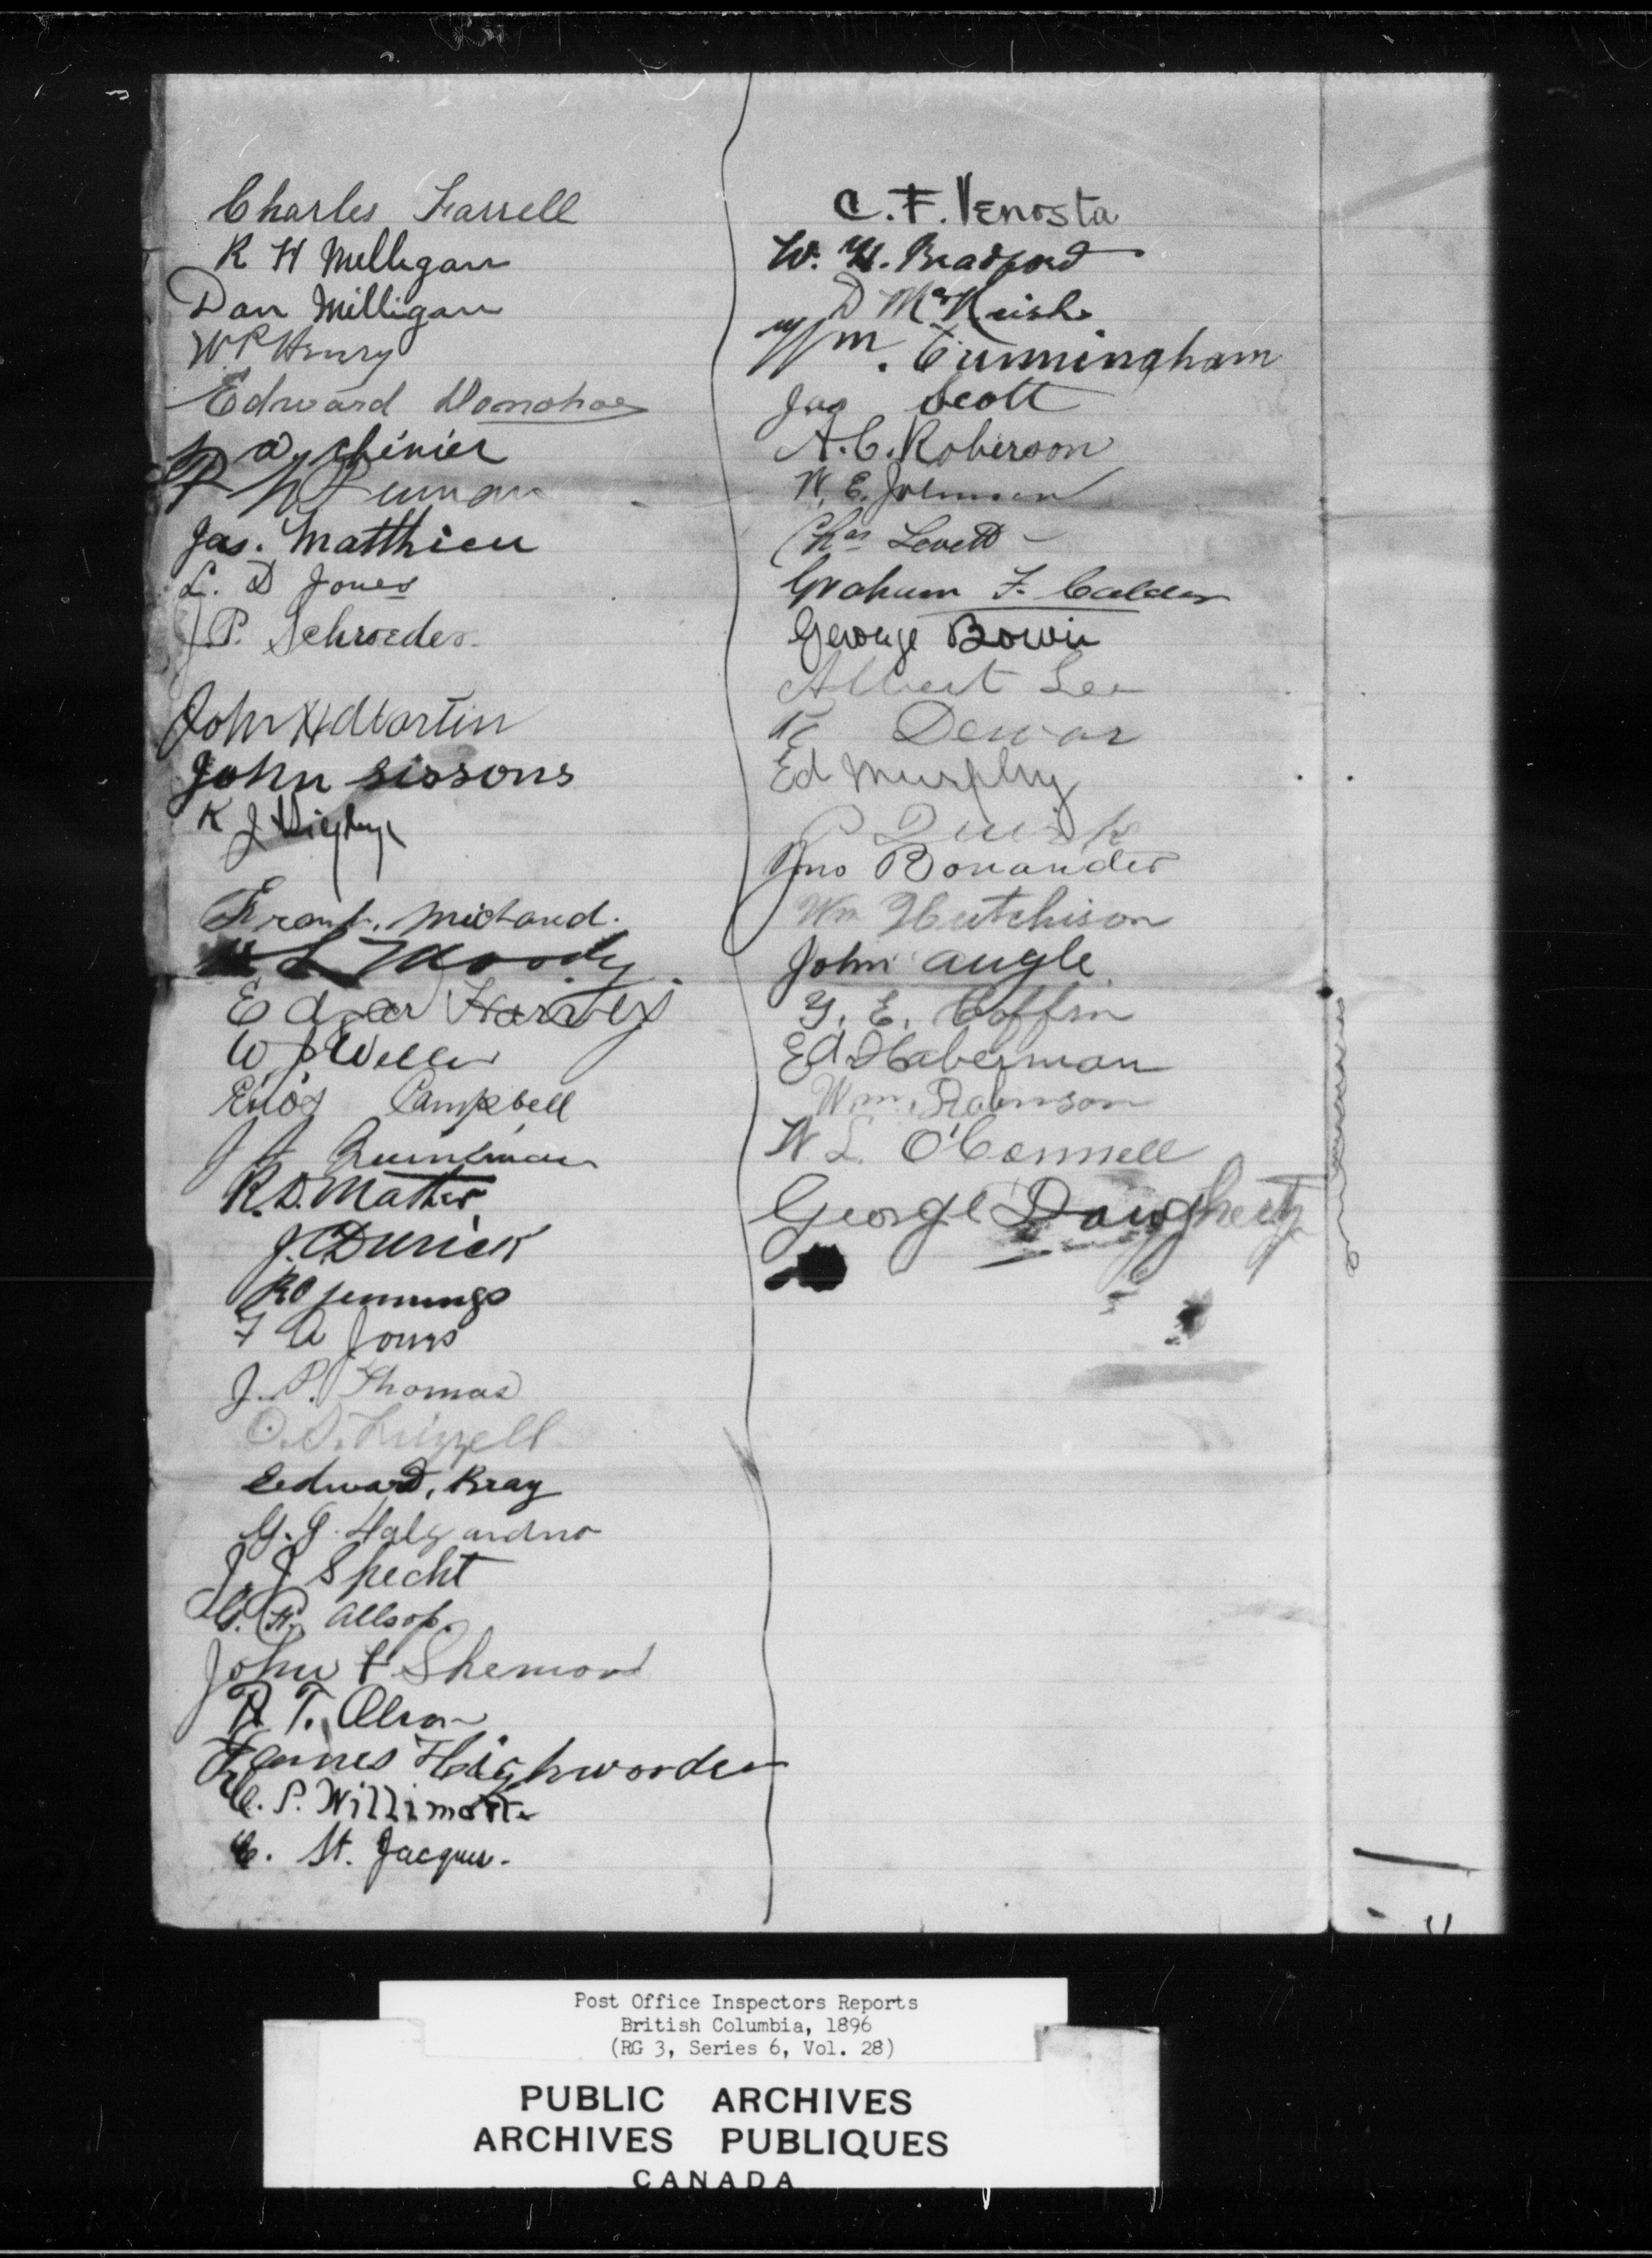 Charles Farrell
R H Milligan
Dan Milligan
W P Henry
Edward Donohoe
Jas. Matthieu
L. D Jones
J. P. Schroeder
John H Martin
John Sissons
K J
Frank Michaud.
L Moody
Edgar Harvey
W J Weller
Enos Campbell
J
R. D. Mather
J. C Durick
R O Jennings
F A Jones
J. P. Thomas
O. S. Frizzell
Eedward, Bray
G. G.
J. J Specht
G. H. Allsop.
John F Shemond
R. T. Olson
James Highwarden
C. P. Willimott
C. St. Jacques.
C. F. Venosta
W. H. Bradford
D McKeish
Wm. Cunningham
Jas Scott
A. C. Roberson
W. E. Johnson
Chas Lovett
Graham F. Calder
George Bowie
Albert Lee
Dewar
Ed Murphy
P
Jno Bonander
Wm Hutchison
John Augle
Y. E. Coffin
Ed. Haberman
Wm. Robinson
W L. O'Connell
George Daugherty
Post Office Inspectors Reports
British Columbia, 1896
(RG 3, Series 6, Vol. 28)
PUBLIC ARCHIVES
ARCHIVES PUBLIQUES
CANADA